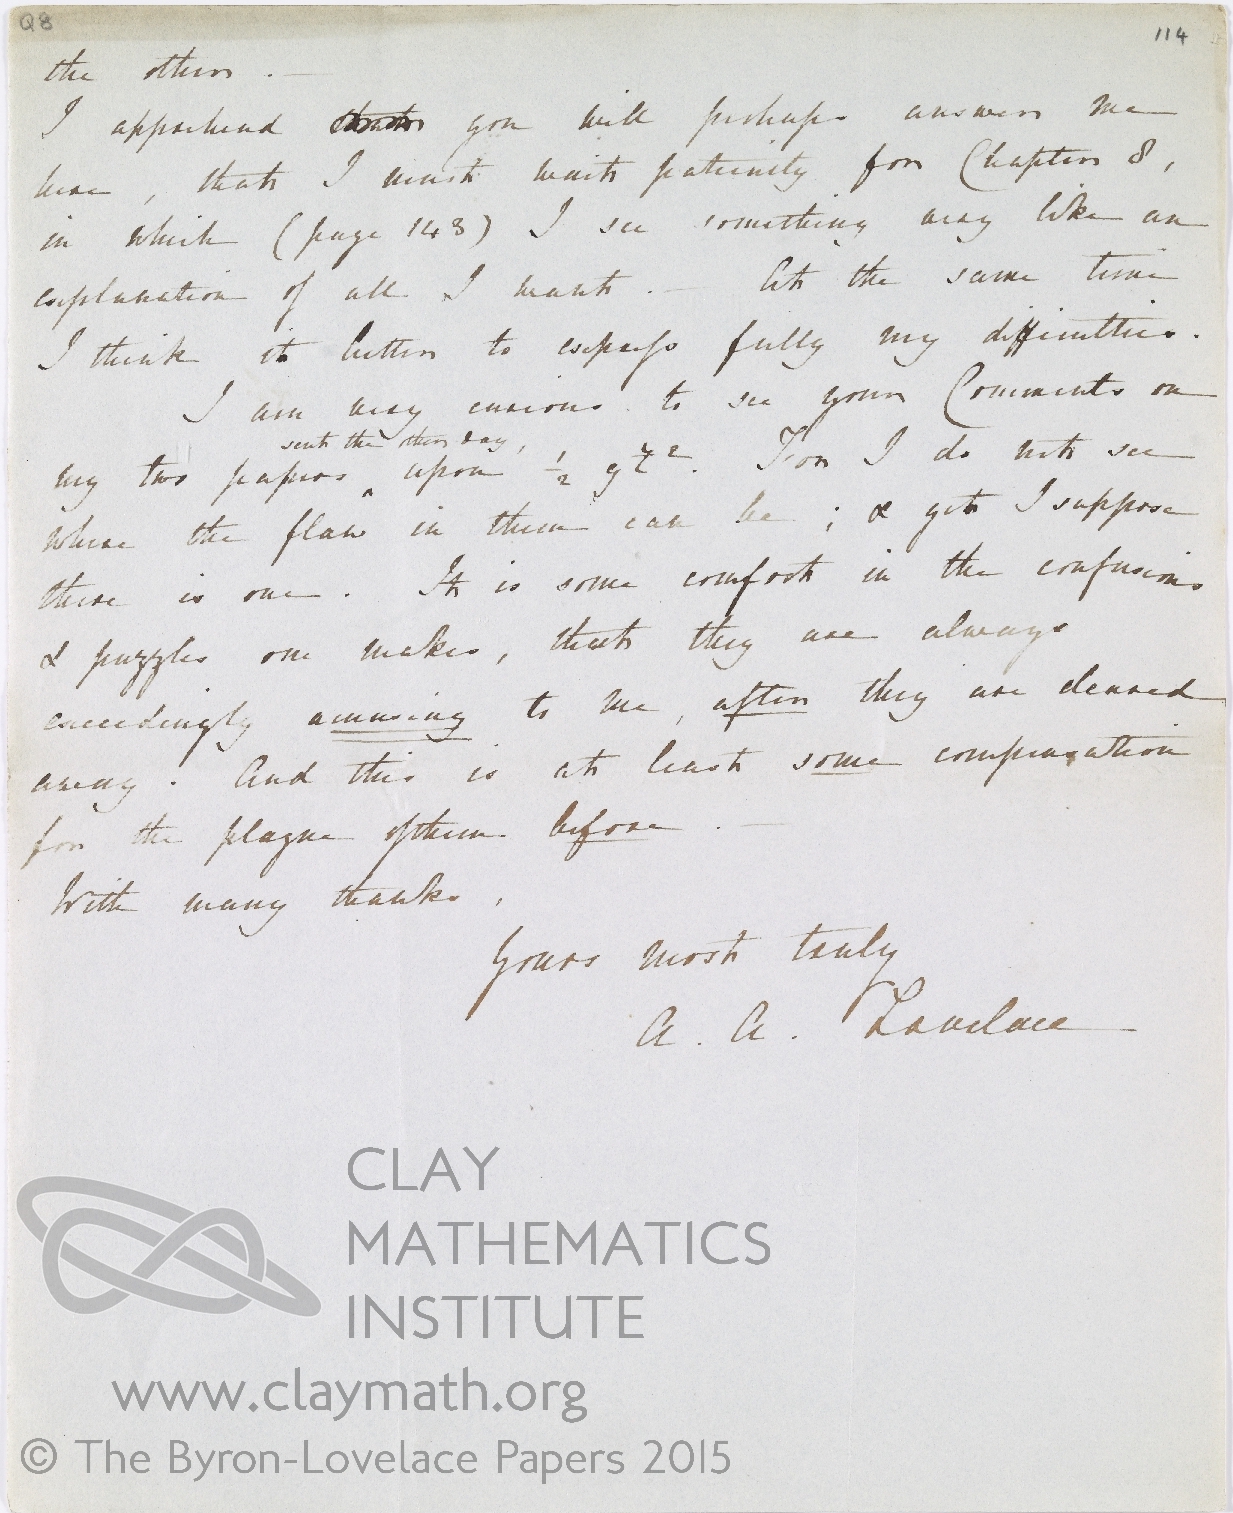 Q8
114
the others. —
I apprehend you will perhaps answer me
here, that I must wait patiently for Chapter 8,
in which (page 143) I see something very like an
explanation of all I want. — At the same time
I think it better to express fully my difficulties.
I am very curious to see your Comments on
sent the other day,
my two papers ^ upon ½ gt². For I do not see
where the flaw in them can be; & yet I suppose
there is one. It is some comfort in the confusions
& puzzles one makes, that they are always
exceedingly amusing to me, after they are cleared
away. And this is at least some compensation
for the plague of them before. —
With many thanks,
Yours most truly
A. A. Lovelace
CLAY
MATHEMATICS
INSTITUTE
www.claymath.org
© The Byron-Lovelace Papers 2015